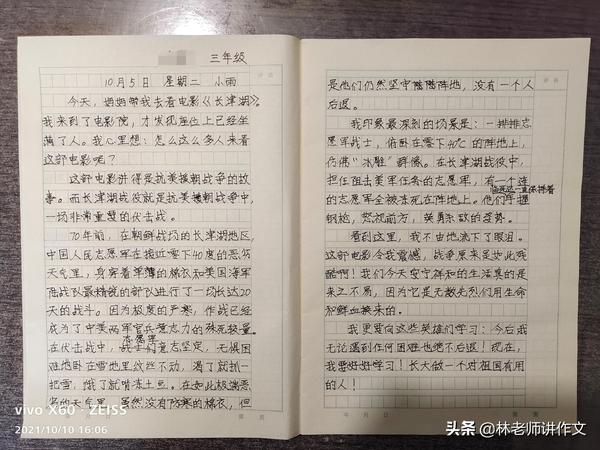 三年级
10月5日 星期二 小雨
今天，妈妈带我去看电影《长津湖》。
我来到了电影院，才发现座位上已经坐
满了人。我心里想：怎么这么多人来看
这部电影呢？
这部电影讲得是抗美援朝战争的故
事。而长津湖战役就是抗美援朝战争中，
一场非常重要的伏击战。
70年前，在朝鲜战场的长津湖地区，
中国人民志愿军在接近零下40度的恶劣
天气里，身穿着单薄的棉衣和美国海军
陆战队最精锐的部队进行了一场长达20
天的战斗。因为极度的严寒，作战已经
成为了中美两军官兵意志力的殊死较量。
志愿军
在伏击战中，战士们意志坚定，无惧困
难地卧在雪地里纹丝不动，渴了就扒一
把雪，饿了就啃冻土豆。在如此极端恶
劣的天气里，虽然没有防寒的棉衣，但
是他们仍然坚守阵地，没有一个人
后退。
我印象最深刻的场景是：一排排志
愿军战士，俯卧在零下40℃的阵地上，
仿佛"冰雕"群像。在长津湖战役中，
担任阻击美军任务的志愿军，有一个连
的志愿军全被冻死在阵地上。他们手握
一直保持着
钢枪，怒视前方，英勇杀敌的姿势。
看到这里，我不由地流下了眼泪。
这部电影令我震撼，战争原来是如此残
酷啊！我们今天安宁祥和的生活真的是
来之不易，因为它是无数先烈们用生命
和鲜血换来的。
我更要向这些英雄们学习：今后我
无论遇到任何困难也绝不后退！现在，
我要好好学习！长大做一个对祖国有用
的人！
年 月 日
vivo X60 · ZEISS
2021/10/10 16:06
头条 @林老师讲作文